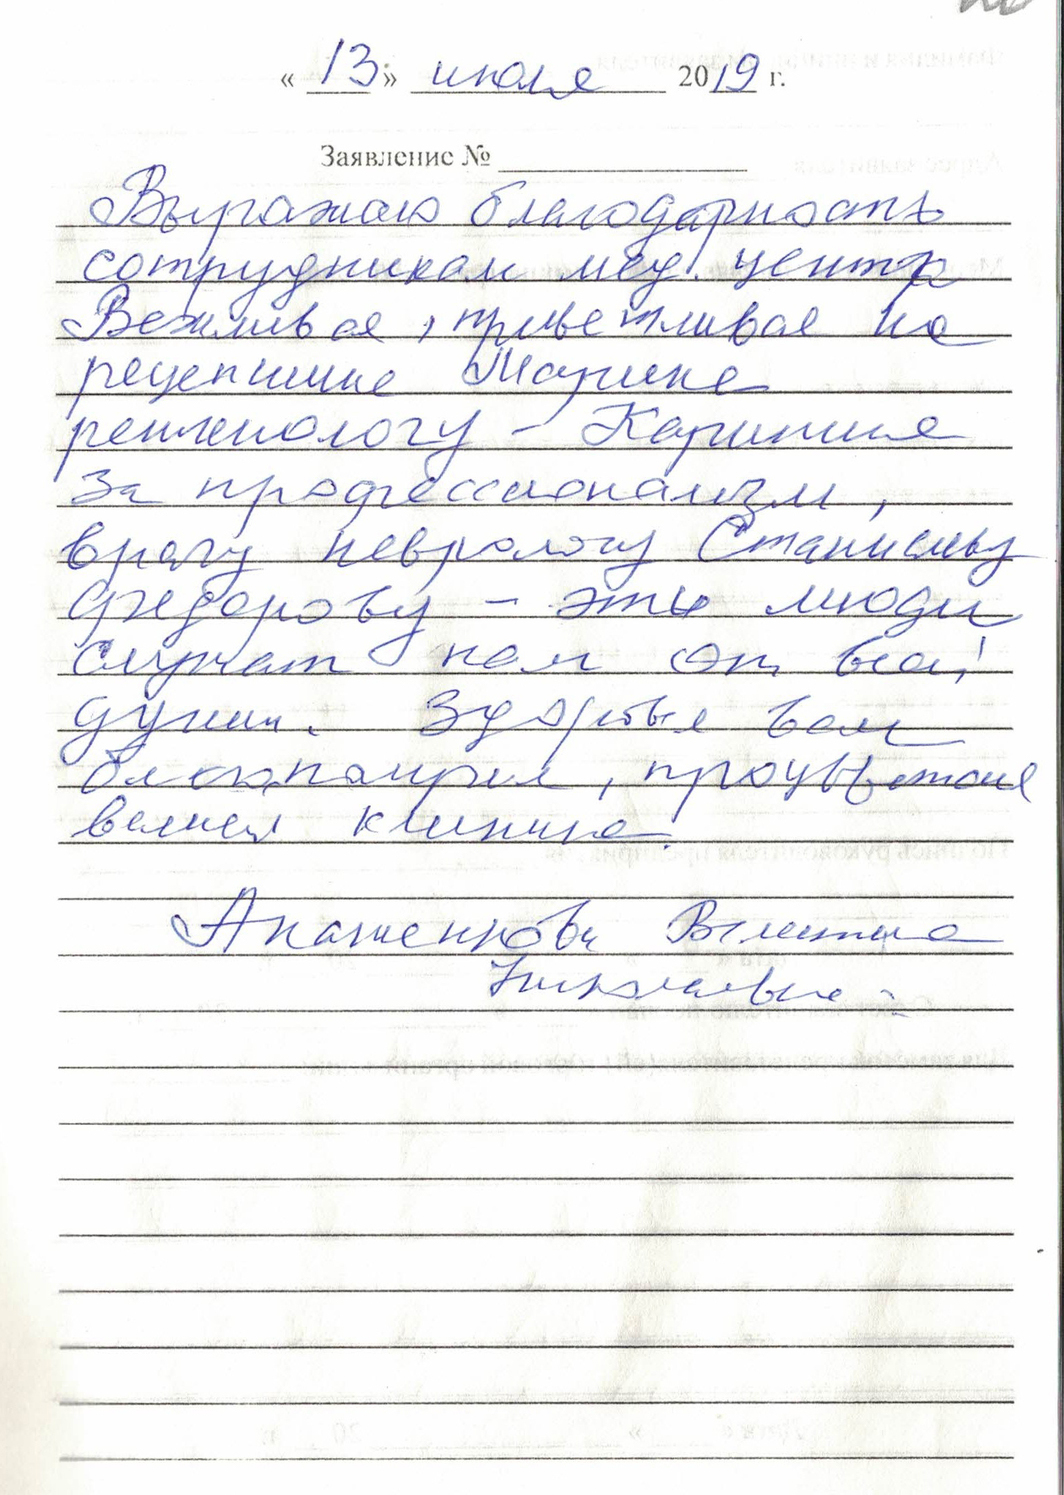 « 13 » июля 2019 г.
Заявление №
Выражаю благодарность
сотрудникам мед. центр
Вежливая, приветливая на
рецепшине Марине
рентгенологу - Карине
За профессионализм,
врачу неврологу Станиславу
Федорову - эти люди
служат нам от всей
души. Здоровья вам
благополучия, процветания
вашей клинике.
Валентина
Николаевна